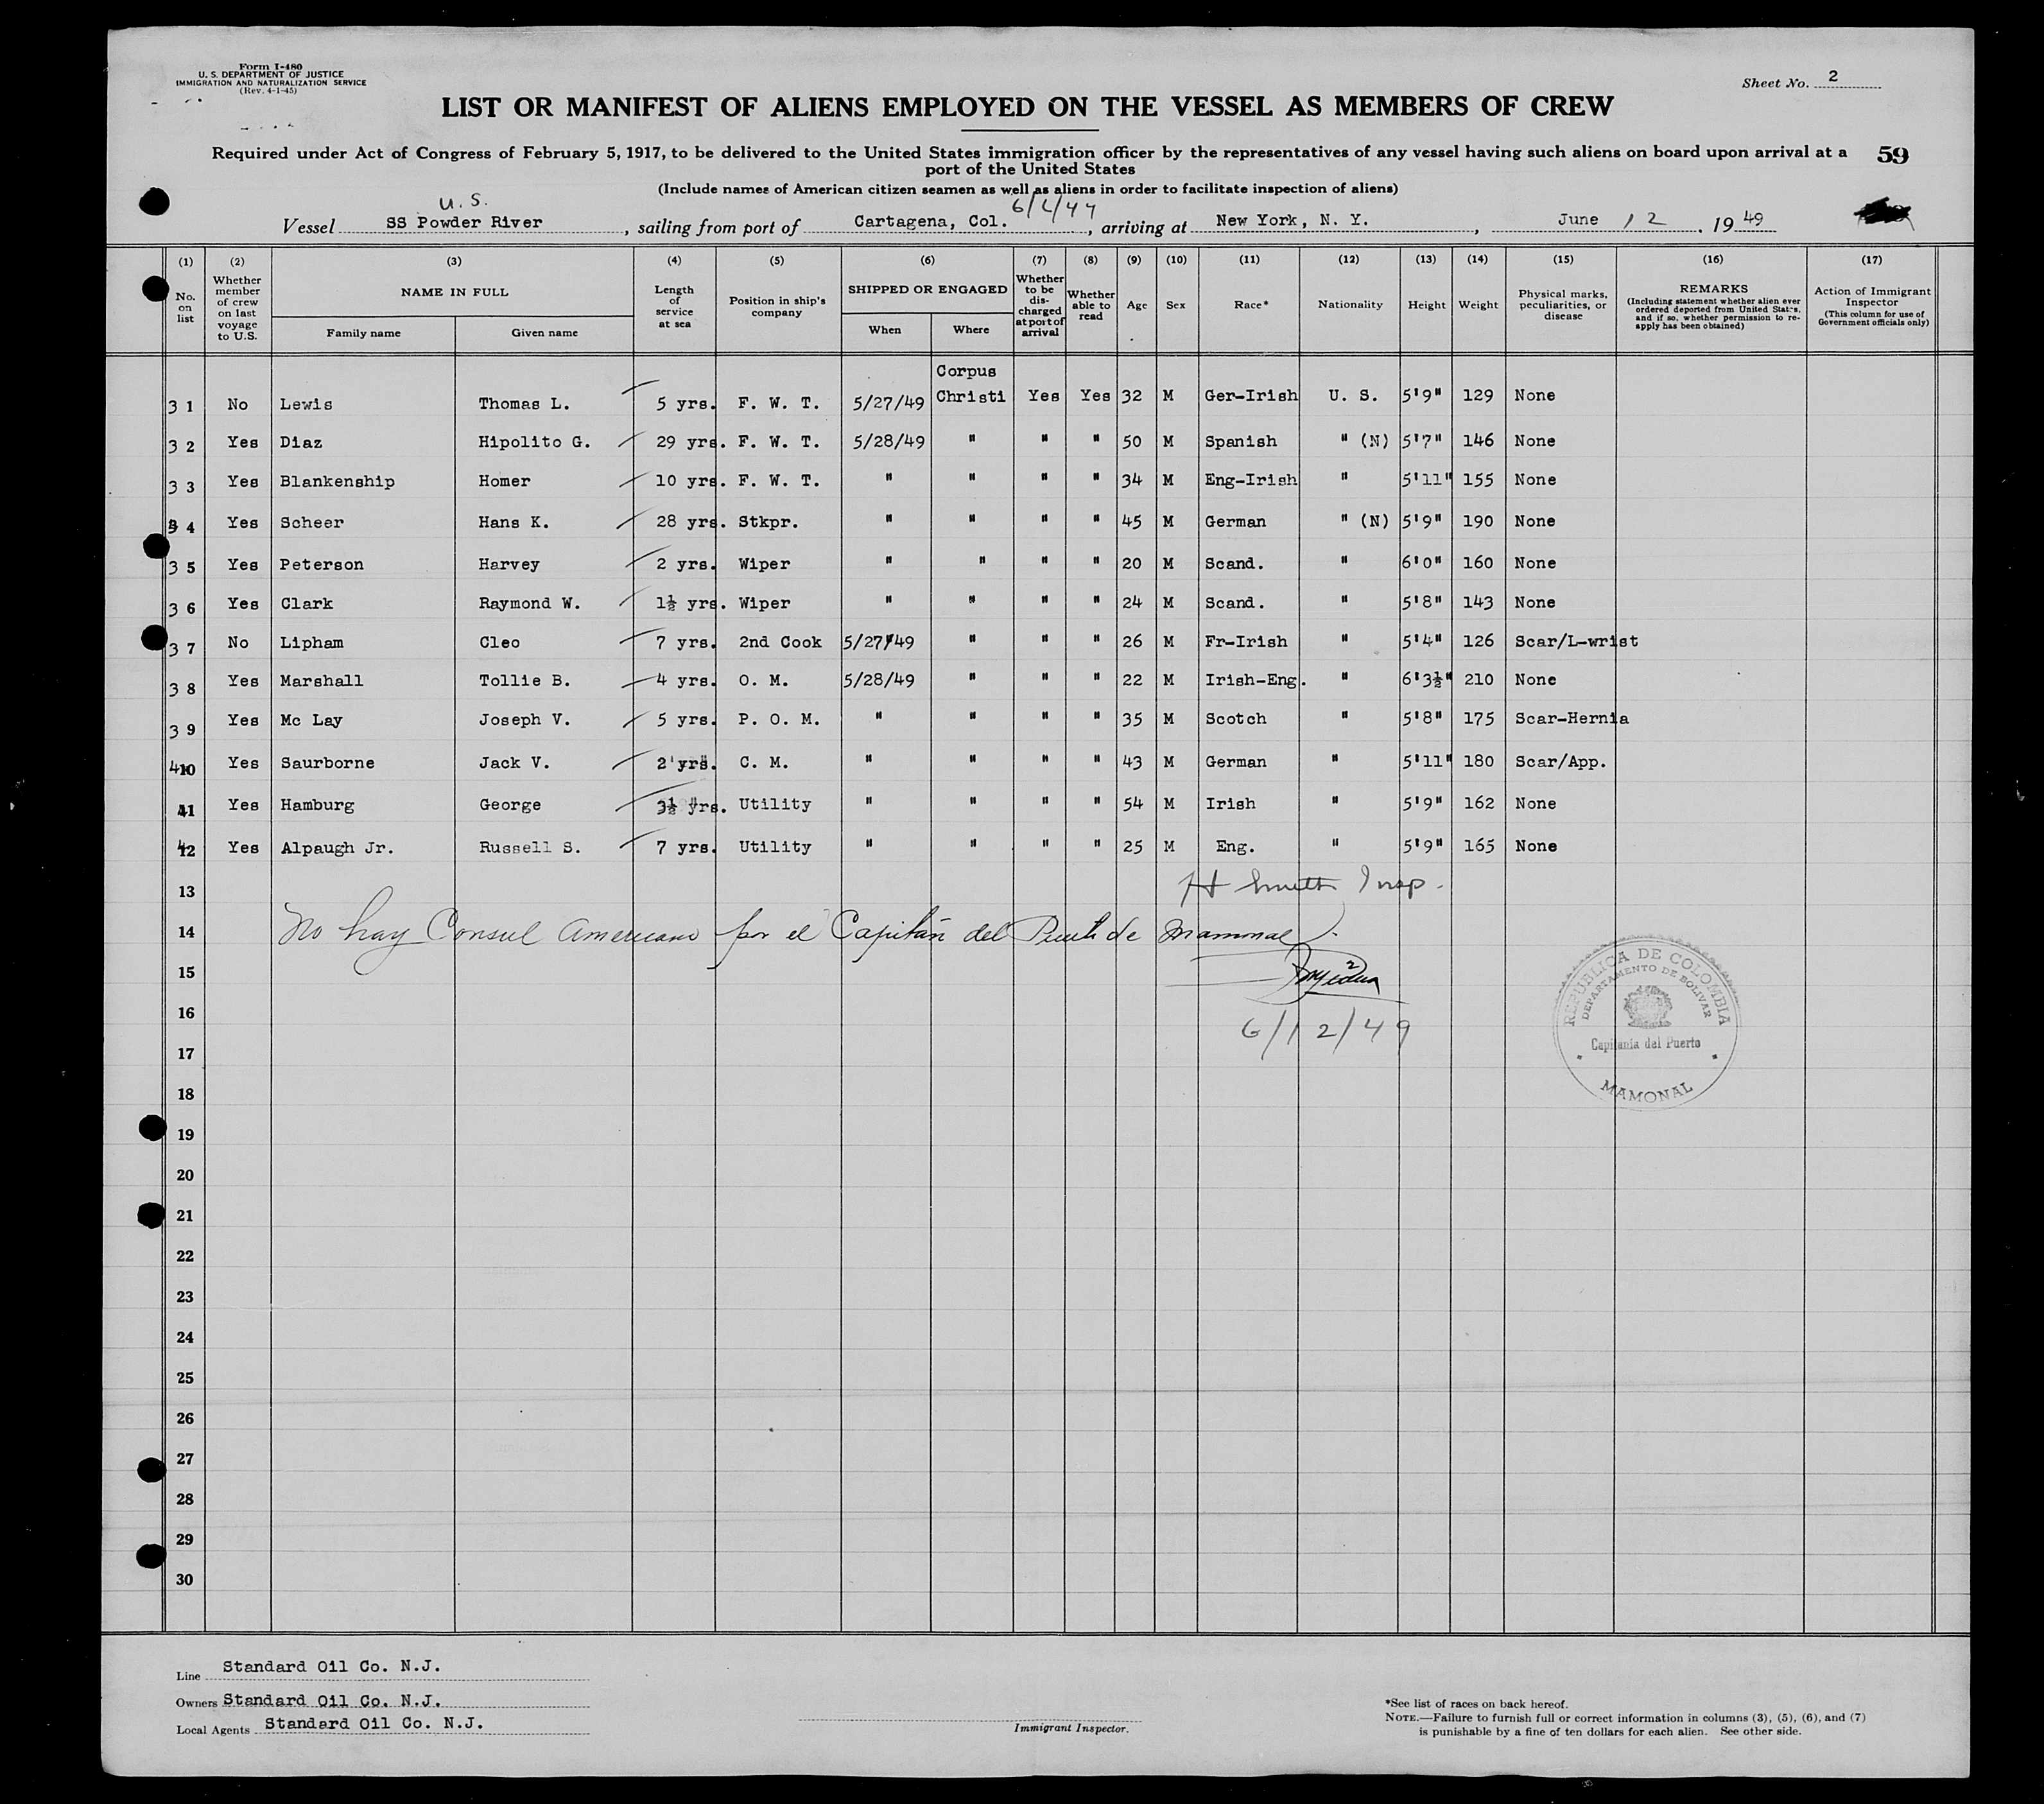 Form I-480
U. S. DEPARTMENT OF JUSTICE
IMMIGRATION AND NATURALIZATION SERVICE
(Rev. 4-1-45)
Sheet No. 2
LIST OR MANIFEST OF ALIENS EMPLOYED ON THE VESSEL AS MEMBERS OF CREW
Required under Act of Congress of February 5, 1917, to be delivered to the United States immigration officer by the representatives of any vessel having such aliens on board upon arrival at a
port of the United States
59
(Include names of American citizen seamen as well as aliens in order to facilitate inspection of aliens)
U. S.
Vessel SS Powder River, sailing from port of Cartagena, Col., arriving at New York, N. Y., June 12, 1949
(1) (2) (3) (4) (5) (6) (7) (8) (9) (10) (11) (12) (13) (14) (15) (16) (17)
No. on list
Whether member of crew on last voyage to U.S.
NAME IN FULL
Family name Given name
Length of service at sea
Position in ship's company
SHIPPED OR ENGAGED
When Where
Whether to be discharged at port of arrival
Whether able to read
Age
Sex
Race*
Nationality
Height
Weight
Physical marks, peculiarities, or disease
REMARKS
(Including statement whether alien ever ordered deported from United States, and if so, whether permission to re-apply has been obtained)
Action of Immigrant Inspector
(This column for use of Government officials only)
31 No Lewis Thomas L. 5 yrs. F. W. T. 5/27/49 Corpus Christi Yes Yes 32 M Ger-Irish U. S. 5'9" 129 None
32 Yes Diaz Hipolito G. 29 yrs. F. W. T. 5/28/49 " " " 50 M Spanish " (N) 5'7" 146 None
33 Yes Blankenship Homer 10 yrs. F. W. T. " " " " 34 M Eng-Irish " 5'11" 155 None
34 Yes Scheer Hans K. 28 yrs. Stkpr. " " " " 45 M German " (N) 5'9" 190 None
35 Yes Peterson Harvey 2 yrs. Wiper " " " " 20 M Scand. " 6'0" 160 None
36 Yes Clark Raymond W. 1½ yrs. Wiper " " " " 24 M Scand. " 5'8" 143 None
37 No Lipham Cleo 7 yrs. 2nd Cook 5/27/49 " " " 26 M Fr-Irish " 5'4" 126 Scar/L-wrist
38 Yes Marshall Tollie B. 4 yrs. O. M. 5/28/49 " " " 22 M Irish-Eng. " 6'3½" 210 None
39 Yes Mc Lay Joseph V. 5 yrs. P. O. M. " " " " 35 M Scotch " 5'8" 175 Scar-Hernia
40 Yes Saurborne Jack V. 2 yrs. C. M. " " " " 43 M German " 5'11" 180 Scar/App.
41 Yes Hamburg George 3½ yrs. Utility " " " " 54 M Irish " 5'9" 162 None
42 Yes Alpaugh Jr. Russell S. 7 yrs. Utility " " " " 25 M Eng. " 5'9" 165 None
13 H Smith Insp.
14 No hay Consul Americano por el Capitán del Puerto de Mamonal
15
16
6/12/49
17
18
19
20
21
22
23
24
25
26
27
28
29
30
REPUBLICA DE COLOMBIA
DEPARTAMENTO DE BOLIVAR
Capitania del Puerto
MAMONAL
Line Standard Oil Co. N.J.
Owners Standard Oil Co. N.J.
Local Agents Standard Oil Co. N.J.
Immigrant Inspector.
*See list of races on back hereof.
NOTE.—Failure to furnish full or correct information in columns (3), (5), (6), and (7)
is punishable by a fine of ten dollars for each alien. See other side.